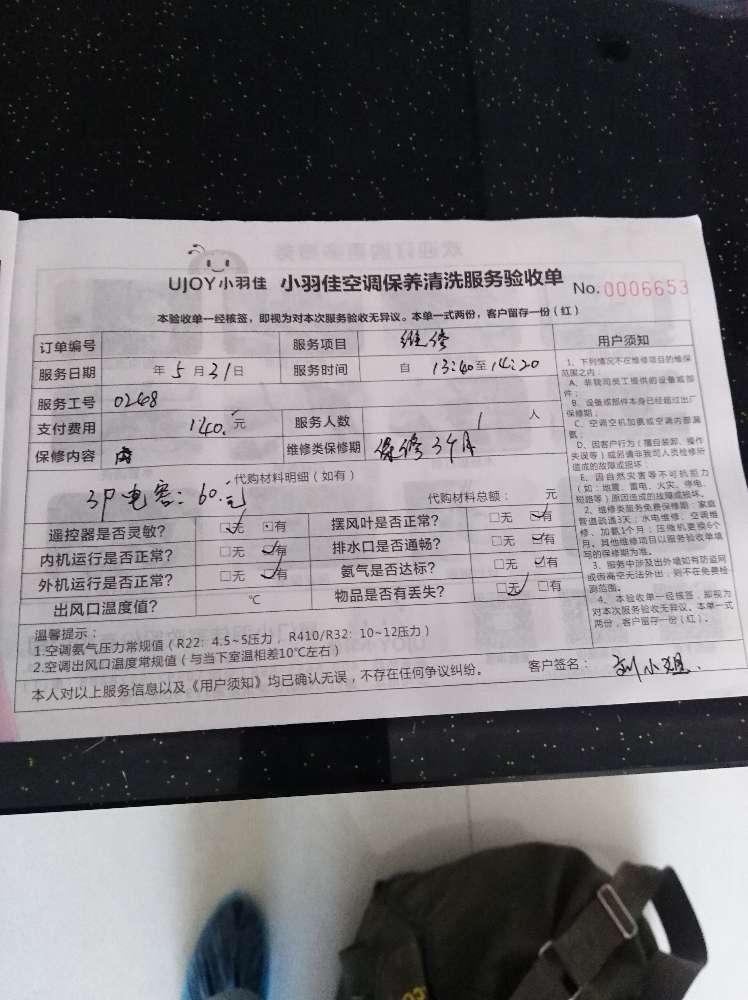 UJOY小羽佳 小羽佳空调保养清洗服务验收单 No.0006653
本验收单一经核签，即视为对本次服务验收无异议。本单一式两份，客户留存一份（红）
订单编号 服务项目 维修
服务日期 年5月31日 服务时间 自 13:40至14:20
服务工号 0268
支付费用 140.元 服务人数 1 人
保修内容 维修类保修期 保修3个月
代购材料明细（如有）
3P电容：60.元
代购材料总额： 元
遥控器是否灵敏？ □无 □有 摆风叶是否正常？ □无 □有
内机运行是否正常？ □无 □有 排水口是否通畅？ □无 □有
外机运行是否正常？ □无 □有 氨气是否达标？ □无 □有
出风口温度值？ ℃ 物品是否有丢失？ □无 □有
温馨提示：
1.空调氨气压力常规值（R22：4.5~5压力，R410/R32：10~12压力）
2.空调出风口温度常规值（与当下室温相差10℃左右）
客户签名： 刘小姐.
本人对以上服务信息以及《用户须知》均已确认无误，不存在任何争议纠纷。
用户须知
1、下列情况不在维修项目的维保
范围之内：
A、非我司员工提供的设备或部
件；
B、设备或部件本身已经超过出厂
保修期；
C、空调空机加氨或空调内部漏
氨；
D、因客户行为（擅自装卸、操作
失误等）或另请非我司人员检修所
造成的故障或损坏；
E、因自然灾害等不可抗拒力
（如：地震、雷电、火灾、停电、
短路等）原因造成的故障或损坏。
2、维修类服务免费保修期：家庭
管道疏通3天；水电维修、空调维
修、加氨1个月；压缩机更换6个
月。其他维修项目以服务验收单填
写的保修期为准。
3、服务中涉及出外墙如有防盗网
或因高空无法外出，则不在免费检
测范围。
4、本验收单一经核签，即视为
对本次服务验收无异议。本单一式
两份，客户留存一份（红）。